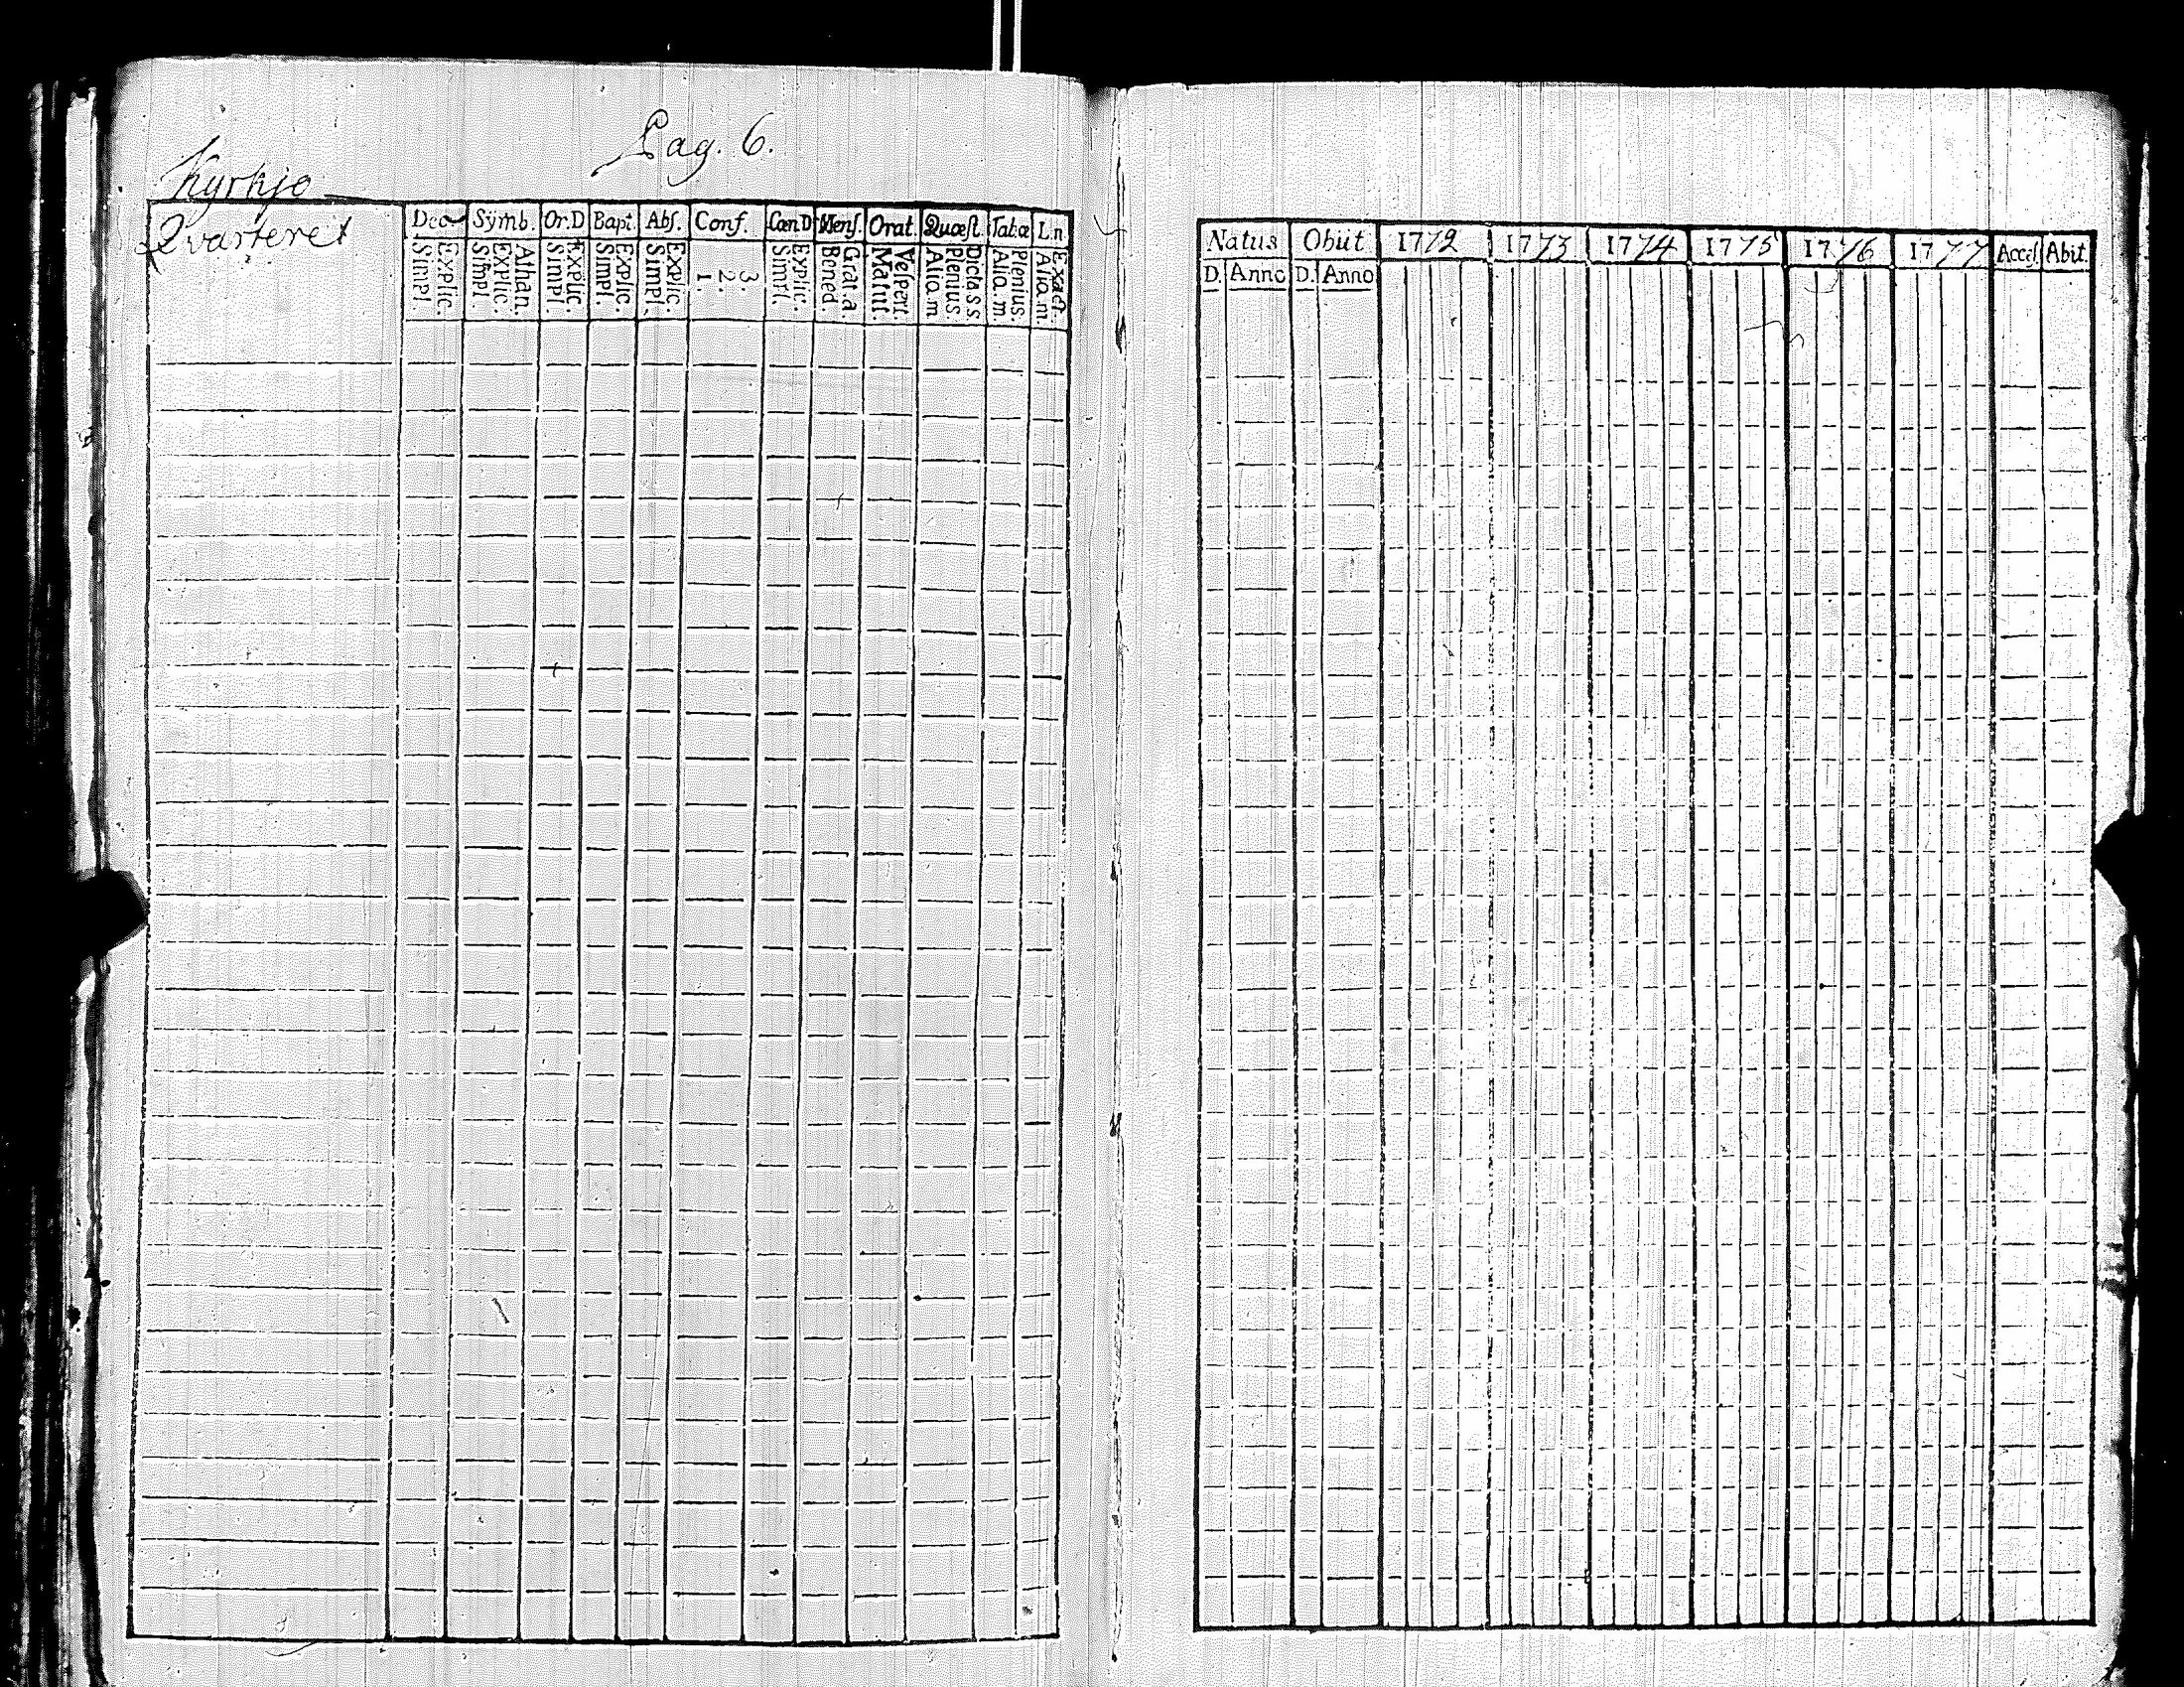 Pag. 6.
Kyrkjo
Qvarteret
Deca Symb. Or.D Bapt. Abs. Conf. Cœn D Mens. Orat. Quæst. Tab.æ L.n.
Simpl. Explic. Simpl. Explic. Athan. Simpl. Explic. Simpl. Explic. Simpl. Explic. 1. 2. 3. Simpl. Explic. Bened. Grat.a. Matut. Vespert. Alia.m Plenius Dicta s.s. Alia.m Plenius. Alia.m. Exact.
Natus Obiit 1772 1773 1774 1775 1776 1777 Acces. Abit.
D. Anno D. Anno